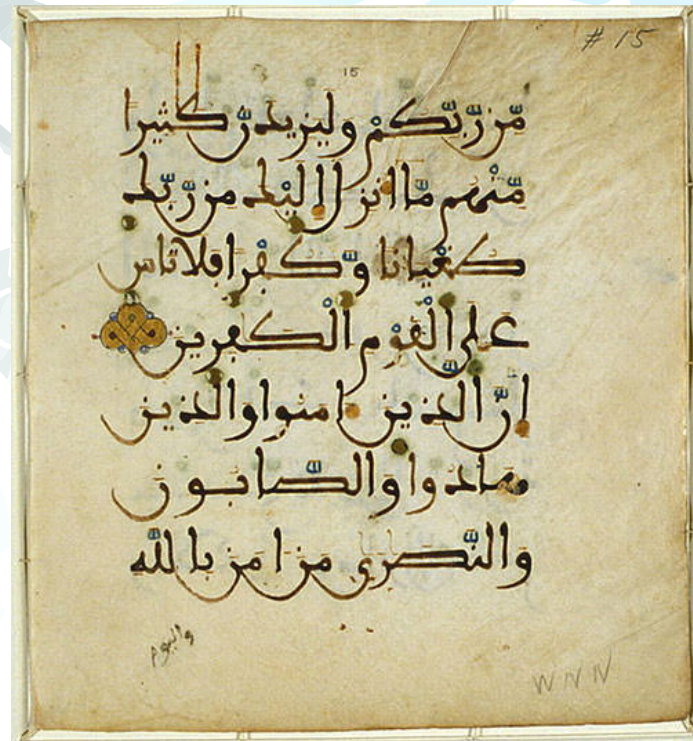 # 15
15
مّن رّبّكمْ وليزيدنّ كثيرا
مّنْهم مّا انزل اليْك من رّبّك
طغْيانا وّكفْرا فلا تاس
على الْقوْم الْكفرين
انّ الّذين امنوا والذين
هادوا والصّابون
والنّصرى من امن بالله
واليوم